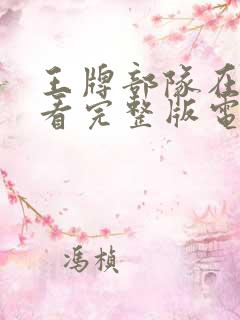 王牌部隊在
看完整版電
馮楨